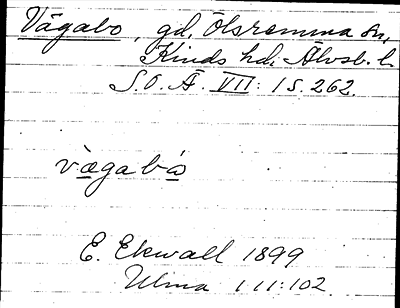 Vägabo, gd, Ölsremma sn,
Kinds hd, Älvsb. l.
S.O.Ä. VII: 1 s. 262.
vägabo
E. Ekwall 1899
Ulma 111:102